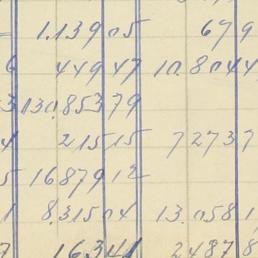 1.139 05 679
6 449 47 10.8044
3 130.853 79
4 215 15 72737
5 16879 12
1 8.315 04 13.0581
7 16.341 24878